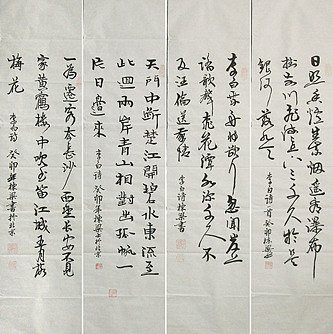 日照香炉生紫烟遥看瀑布
挂前川飞流直下三千尺疑是
银河落九天 李白诗一首 癸卯栋梁书
李白乘舟将欲行忽闻岸上
踏歌声桃花潭水深千尺不
及汪伦送我情 李白诗栋梁书
天门中断楚江開碧水東流至
此迴两岸青山相对出孤帆一
片日邊来 李白诗 癸卯年栋梁书于北京
一為遷客去長沙西望长安不見
家黄鶴楼中吹玉笛江城五月落
梅花 李白诗 癸卯年栋梁書於北京